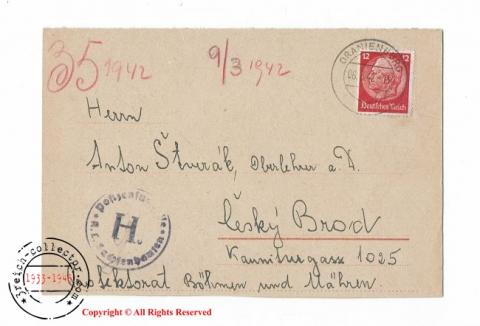 35 1942
9/3 1942
ORANIENBURG
12 12
Deutsches Reich
Herrn
Anton Štverák, Oberlehrer a. D.
Český Brod
Kaunitzgasse 1025
Protektorat Böhmen und Mähren.
H.
3reich-collector.com
1933-1945
Copyright © All Rights Reserved